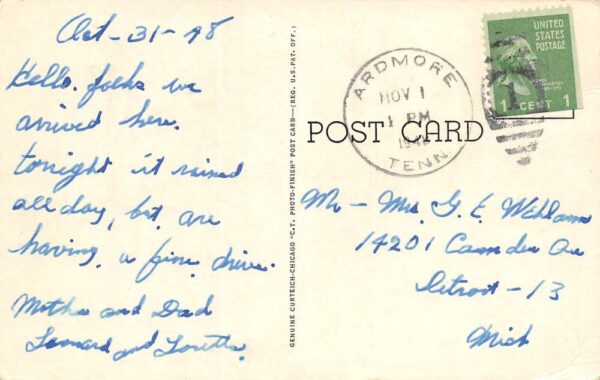 Oct-31-48
Hello folks we
arrived here.
tonight it rained
all day, but are
having a fine drive.
Mother and Dad
Leonard and Loretta.
GENUINE CURTEICH-CHICAGO "C.T. PHOTO-FINISH" POST CARD—(REG. U.S. PAT. OFF.)
ARDMORE
NOV 1
1 PM
TENN.
UNITED
STATES
POSTAGE
1 CENT 1
POST CARD
Mr - Mrs G. E.
14201 Camden Ave
Detroit - 13
Mich